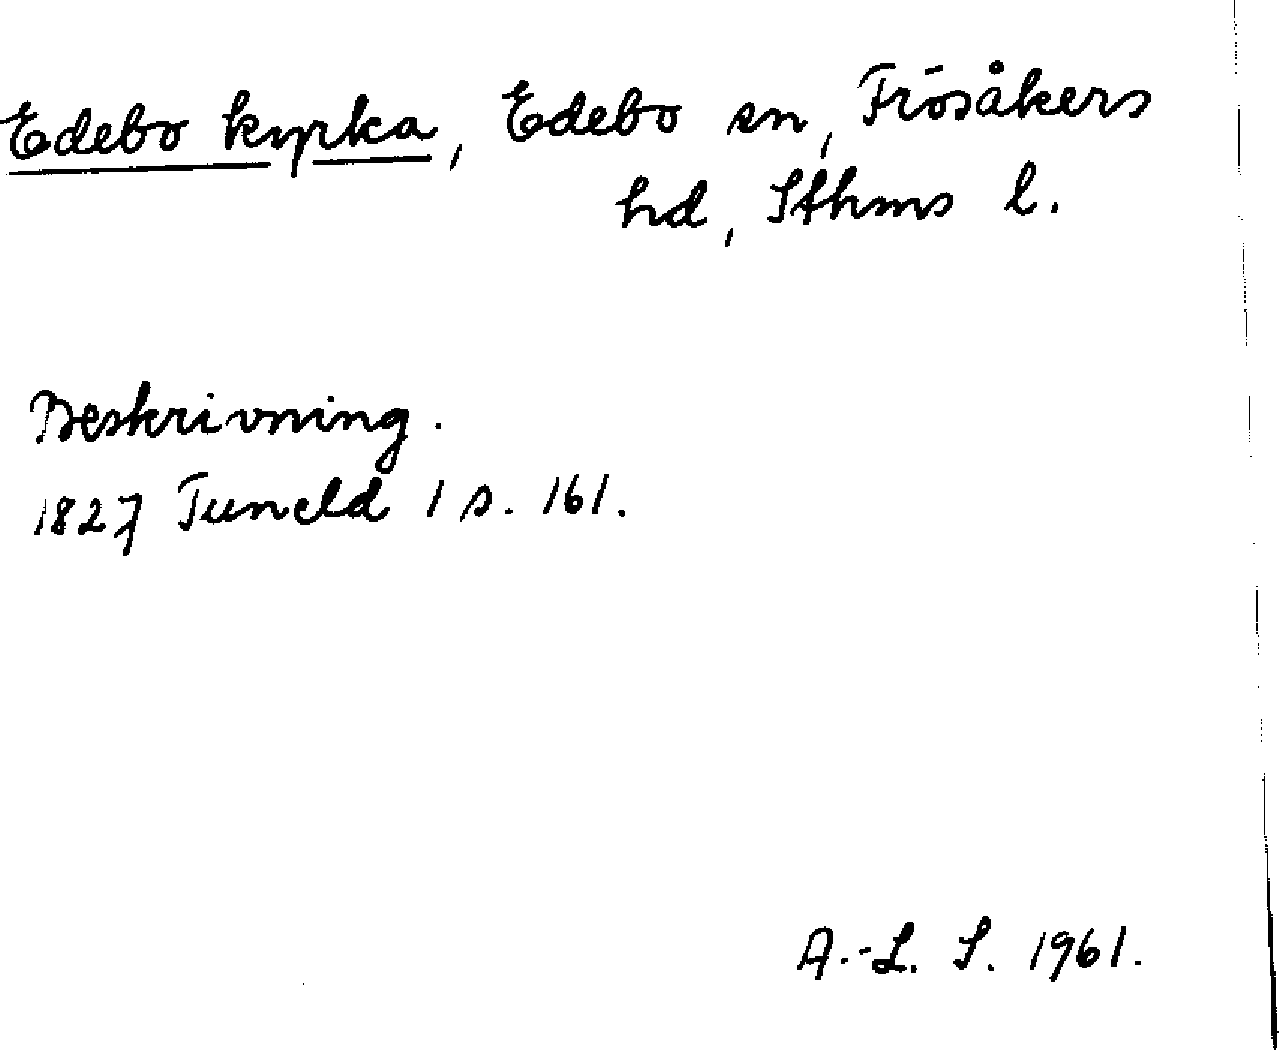 Edebo kyrka, Edebo sn, Frösåkers
hd, Sthms l.
Beskrivning.
1827 Tuneld 1 s. 161.
A.-L. S. 1961.